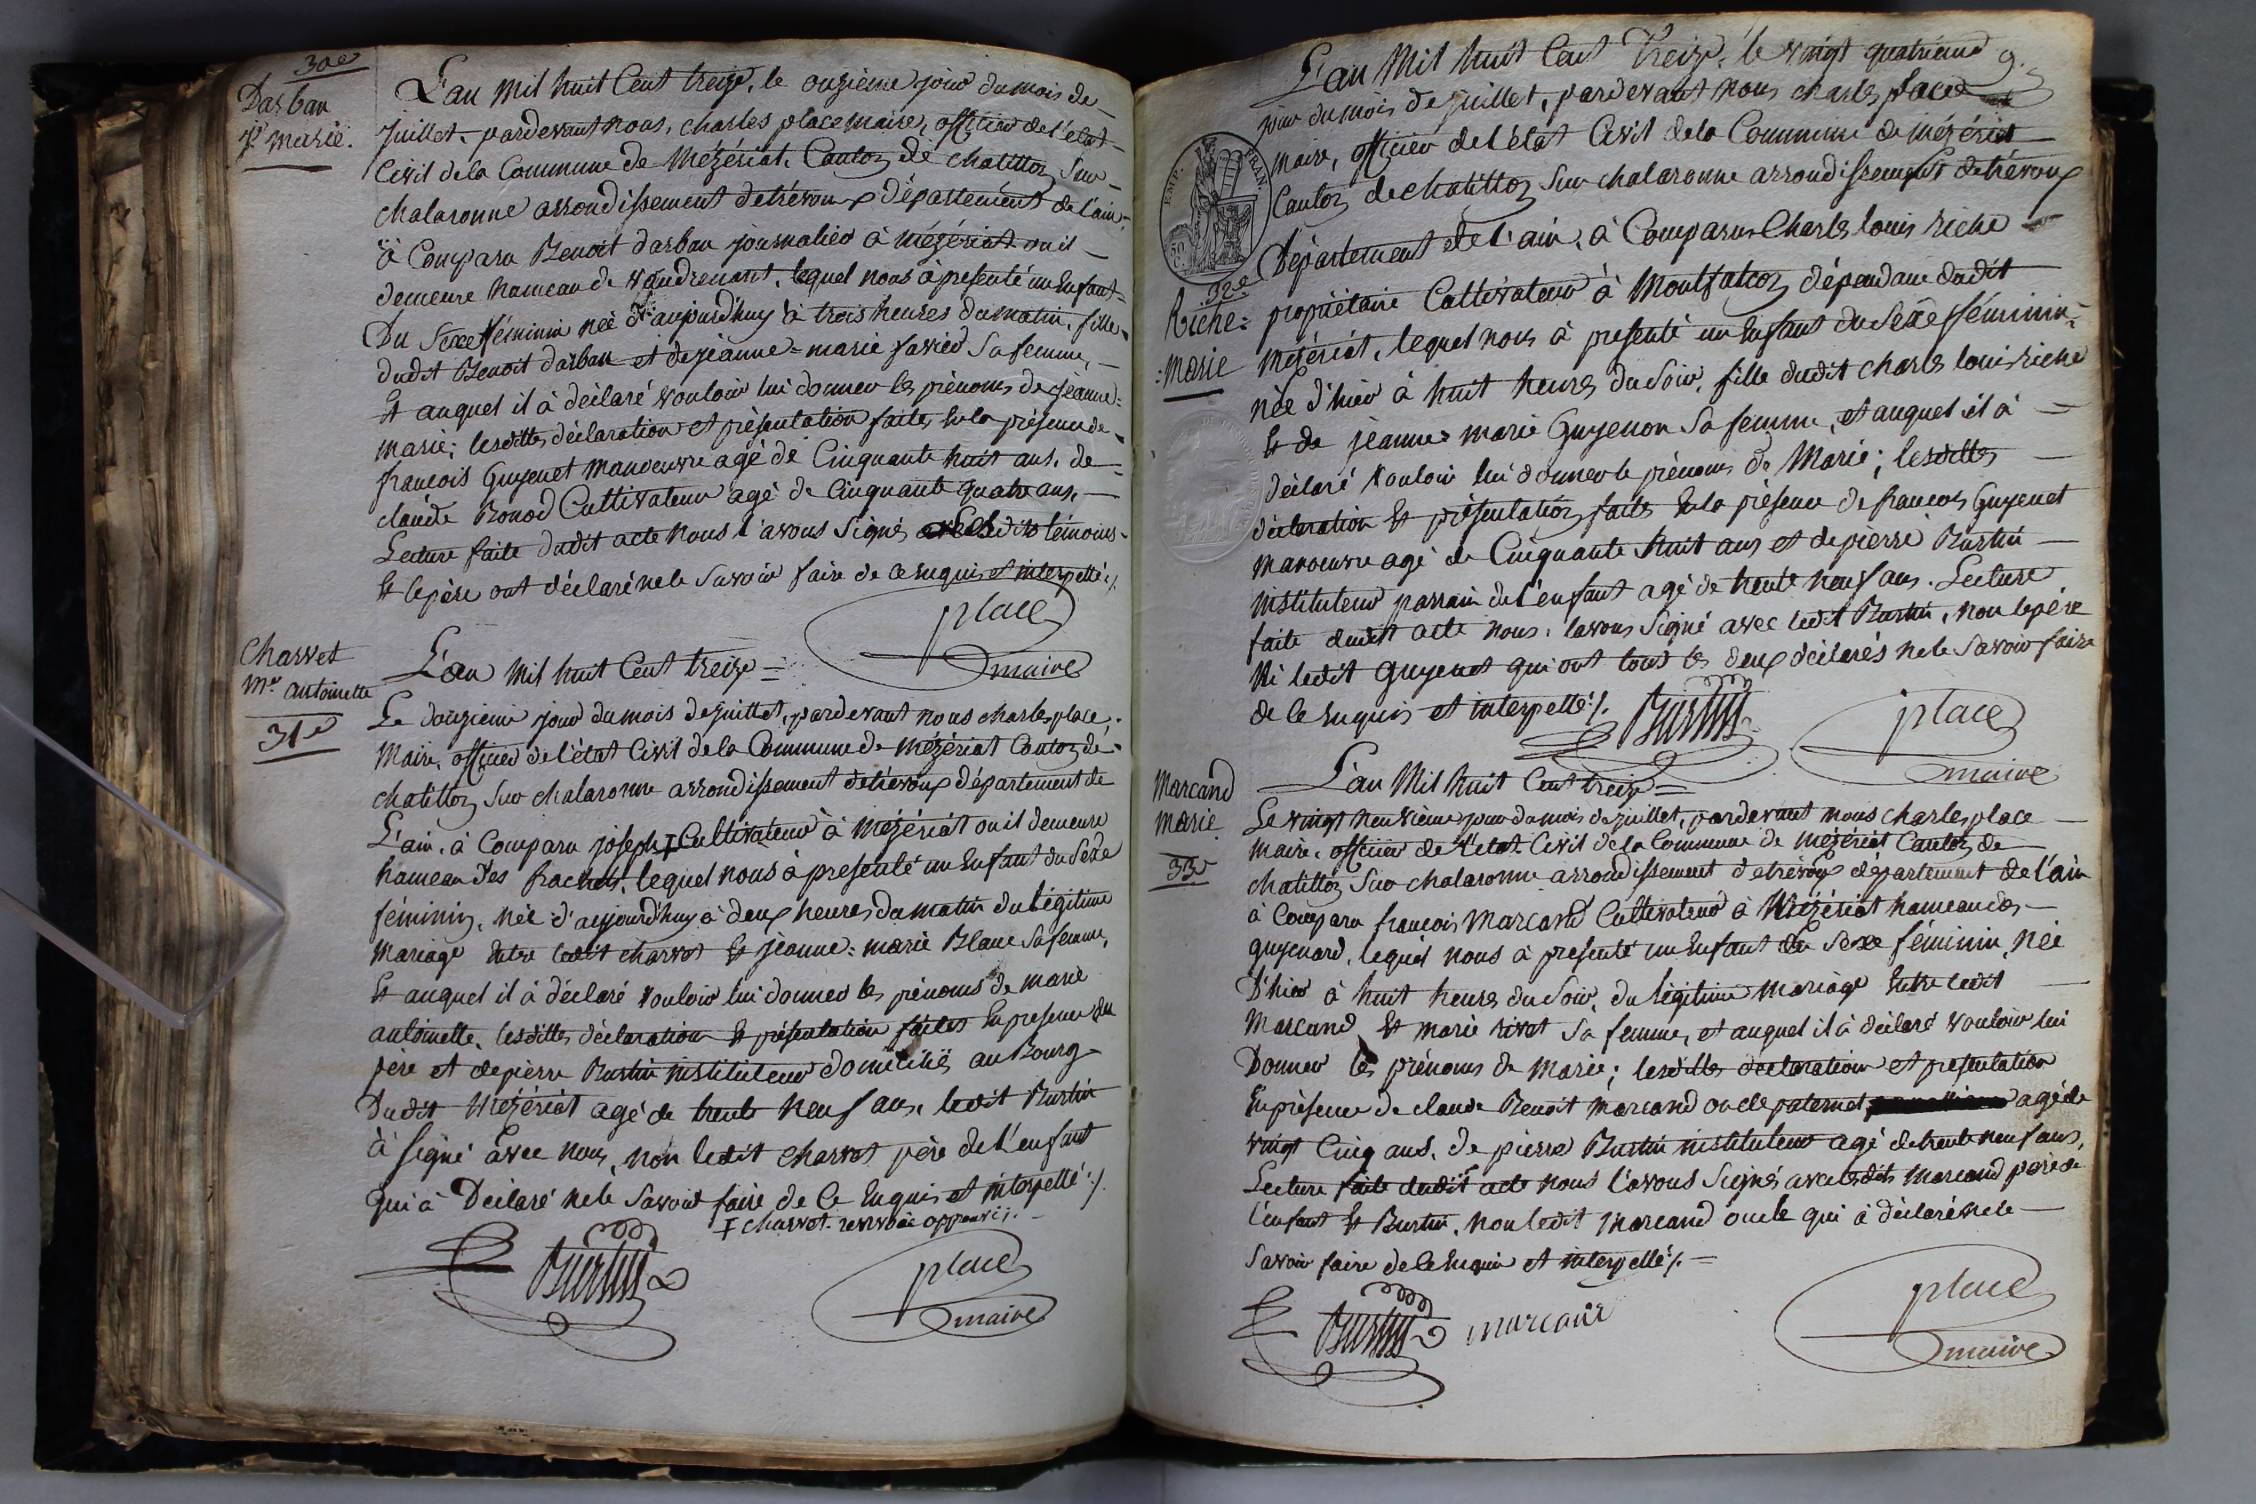 30e
Darban
Je Marie.
L'an mil huit Cent treize, le onzieme jour du mois de
juillet, pardevant nous, charles place maire, officier de l'état
Civil de la Commune de Mézériat, Canton de chatillon Sur
chalaronne arrondissement de trévoux département de l'ain,
à Comparu Benoit darban journalier à Mézériat ou il
demeure hameau de vaudrenant, lequel nous à presenté un Enfant
Du Sexe féminin née d'aujourd'huy à trois heures du matin, fille
dudit Benoit darban et de jeanne=marie favier Sa femme,
Et auquel il à déclaré vouloir lui donner les prénoms de jeanne=
marie; lesdittes déclaration et présentation faites En la présence de
francois Guyenet manoeuvre agé de Cinquante huit ans, de
claude Bonod Cultivateur agé de Cinquante quatre ans,
Lecture faite dudit acte Nous l'avons Signé lesdits témoins
Et le père ont déclaré ne le Savoir faire de ce Enquis et interpellé ./.
place
maire
Charvet
Mie antoinette
31e
L'an mil huit Cent treize =
Le douzieme jour du mois de juillet, pardevant nous charles place
Maire, officier de l'état Civil de la Commune de Mézériat Canton de
chatillon Sur chalaronne arrondissement de trévoux département de
L'ain, à Comparu joseph Ŧ Cultivateur à Mézériat ou il demeure
hameau des frachets, lequel nous à presenté un Enfant du Sexe
féminin, née d'aujourd'huy à deux heures du matin du légitime
Mariage Entre ledit charvet Et jeanne=marie Blanc Sa femme,
Et auquel il à déclaré vouloir lui donner les prénoms de marie
antoinette, lesdittes déclaration Et présentation faites En presence du
père et de pierre Burtin instituteur domicilié au Bourg
Dudit Mézériat agé de trente Neuf ans, ledit Burtin
à Signé avec nous, non ledit charvet père de L'enfant
qui à Déclaré ne le Savoir faire de Ce Enquis et interpellé ./.
Ŧ charvet. renvoie approuvé ./.
Burtin
place
maire
9.
L'an Mil huit Cent Treize, le vingt quatrieme
jour du mois de juillet, pardevant nous charles place
Maire, officier de l'état Civil de la Commune de mézériat
Canton de chatillon Sur chalaronne arrondissement de trévoux
EMP. FRAN.
50 C.
Département de l'ain, à Comparu Charles louis riche
32e
Riche=
=Marie
propriétaire Cultivateur à Montfalcon dépendant dudit
Mézériat, lequel nous à presenté un Enfant du Sexe féminin
née d'hier à huit heures du Soir, fille dudit charles louis riche
Et de jeanne marie Guyenon Sa femme, et auquel il à
déclaré Vouloir lui donner le prénoms de Marie; lesdittes
déclaration Et présentation faites En la présence de francois Guyenet
Manoeuvre agé de Cinquante huit ans et de pierre Burtin
instituteur parrain de l'enfant agé de trente neuf ans. Lecture
faite dudit acte nous, lavons Signé avec ledit Burtin, non le père
Ni ledit Guyenet qui ont tous les deux déclarés ne le Savoir faire
de Ce Enquis et interpellé ./.
Burtin
place
maire
Marcand
Marie
33e
L'an Mil huit Cent treize =
Le vingt Neuvième jour du mois de juillet, pardevant nous charles place
Maire, officier de l'état Civil de la Commune de Mézériat Canton de
chatillon Sur chalaronne arrondissement de trévoux département de l'ain
à Comparu francois Marcand Cultivateur à Mézériat hameau des
guyenard, lequel nous à presenté un Enfant du Sexe féminin, née
D'hier à huit heures du Soir, du légitime Mariage Entre ledit
Marcand, Et marie rivet Sa femme, et auquel il à déclaré vouloir lui
Donner les prénoms de Marie; lesdittes declaration et présentation
En présence de claude Benoit Marcand oncle paternel, agé de
vingt Cinq ans, de pierre Burtin instituteur agé de trente neuf ans,
Lecture faite dudit acte nous l'avons Signés avec lesdits Marcand père de
l'enfant Et Burtin, non ledit Marcand oncle qui à déclaré ne le
Savoir faire de Ce Enquis et interpellé ./. =
Burtin
marcand
place
maire